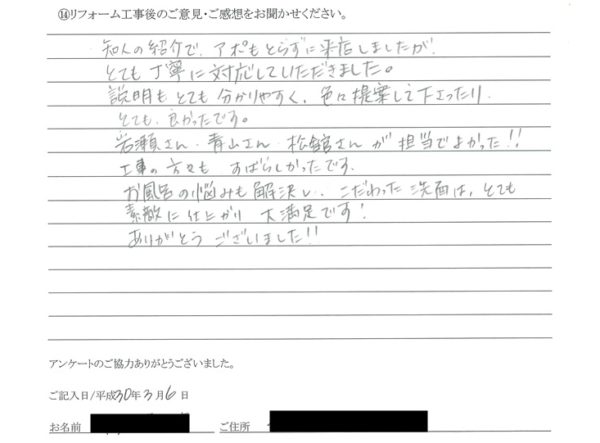 ⑭リフォーム工事後のご意見・ご感想をお聞かせください。
知人の紹介で、アポもとらずに来店しましたが、
とても丁寧に対応していただきました。
説明もとても分かりやすく、色々提案して下さったり、
とても、良かったです。
岩瀬さん・青山さん・松舘さんが担当でよかった!!
工事の方々も すばらしかったです。
お風呂の悩みも解決し、こだわった洗面は、とても
素敵に仕上がり 大満足です!
ありがとう ございました!!
アンケートのご協力ありがとうございました。
ご記入日/平成30年3月6日
お名前 ご住所